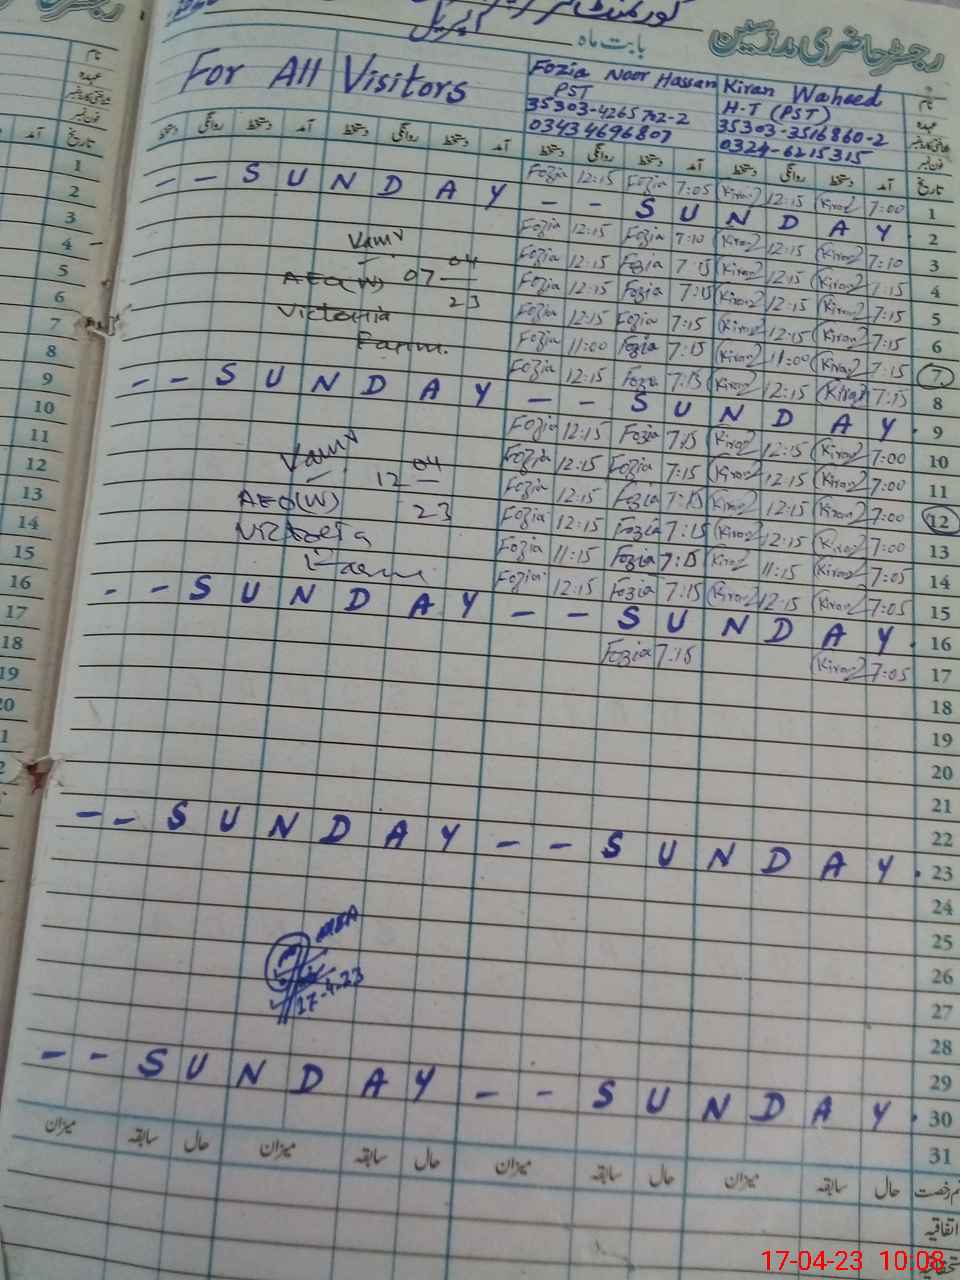 رجسٹر حاضری مدرسین
بابت ماہ اپریل
For All Visitors
Fozia Noor Hassan
PST
35303-4265702-2
03434696807
Kiran Waheed
H-T (PST)
35303-3516860-2
0324-6215315
تاریخ آمد دستخط روانگی دستخط آمد دستخط روانگی دستخط آمد دستخط روانگی دستخط آمد دستخط روانگی دستخط
1 7:00 Kiran 12:15 Kiran 7:05 Fozia 12:15 Fozia
2 - - SUNDAY - - SUNDAY
3 7:10 Kiran 12:15 Kiran 7:10 Fozia 12:15 Fozia
4 7:15 Kiran 12:15 Kiran 7:15 Fozia 12:15 Fozia
5 7:15 Kiran 12:15 Kiran 7:15 Fozia 12:15 Fozia
6 7:15 Kiran 12:15 Kiran 7:15 Fozia 12:15 Fozia
7 7:15 Kiran 11:00 Kiran 7:15 Fozia 11:00 Fozia
8 7:15 Kiran 12:15 Kiran 7:15 Fozia 12:15 Fozia
AEO(W) 07 04
23
9 - - SUNDAY - - SUNDAY
10 7:00 Kiran 12:15 Kiran 7:15 Fozia 12:15 Fozia
11 7:00 Kiran 12:15 Kiran 7:15 Fozia 12:15 Fozia
12 7:00 Kiran 12:15 Kiran 7:15 Fozia 12:15 Fozia
13 7:00 Kiran 12:15 Kiran 7:15 Fozia 12:15 Fozia
14 7:05 Kiran 11:15 Kiran 7:15 Fozia 11:15 Fozia
15 7:05 Kiran 12:15 Kiran 7:15 Fozia 12:15 Fozia
AEO(W) 12 04
23
16 - - SUNDAY - - SUNDAY
17 7:05 Kiran 7:15 Fozia
18
19
20
21
22
23 - - SUNDAY - - SUNDAY
24
25
26
MEA
17-4-23
27
28
29
30 - - SUNDAY - - SUNDAY
31
حال سابقہ میزان حال سابقہ میزان حال سابقہ میزان حال سابقہ میزان
اتفاقیہ
17-04-23 10:08